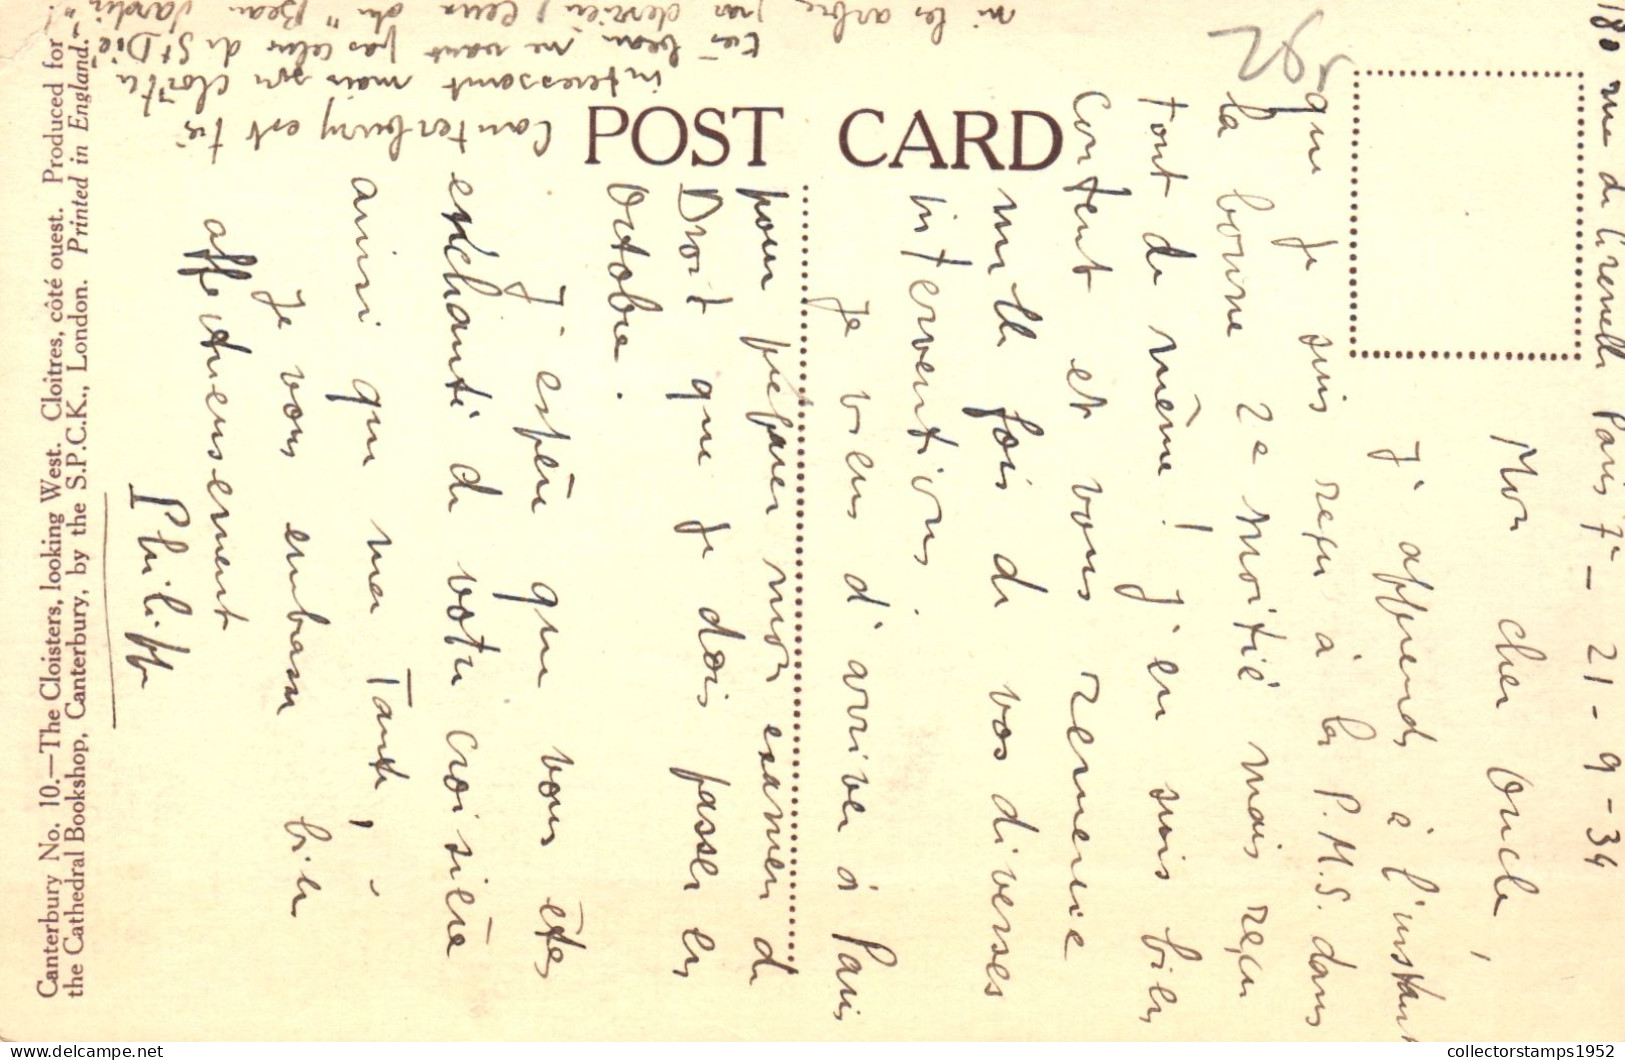 180 rue de Grenelle Paris 7e - 21-9-34
Mon cher Oncle,
J'apprends à l'instant
que je suis reçu à la P.M.S. dans
la bonne 2e moitié mais reçu
tout de même ! J'en suis bien
content et vous remercie
mille fois de vos diverses
interventions.
Je viens d'arriver à Paris
pour préparer mon examen de
Droit que je dois passer en
Octobre.
J'espère que vous êtes
enchanté de votre croisière
ainsi que ma Tante,
Je vous embrasse bien
affectueusement
Philippe
Canterbury est très
interessant mais son cloître
très beau ne vaut pas celui de St Dié
ni les arbres par derrière, ceux du "Beau Jardin"!
POST CARD
Canterbury No. 10.—The Cloisters, looking West. Cloîtres, côté ouest. Produced for
the Cathedral Bookshop, Canterbury, by the S.P.C.K., London. Printed in England.
collectorstamps1952